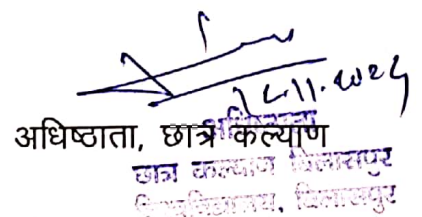 12.11.2024
अधिष्ठाता, छात्र कल्याण
अधिष्ठाता
छात्र कल्याण बिलासपुर
विश्वविद्यालय, बिलासपुर